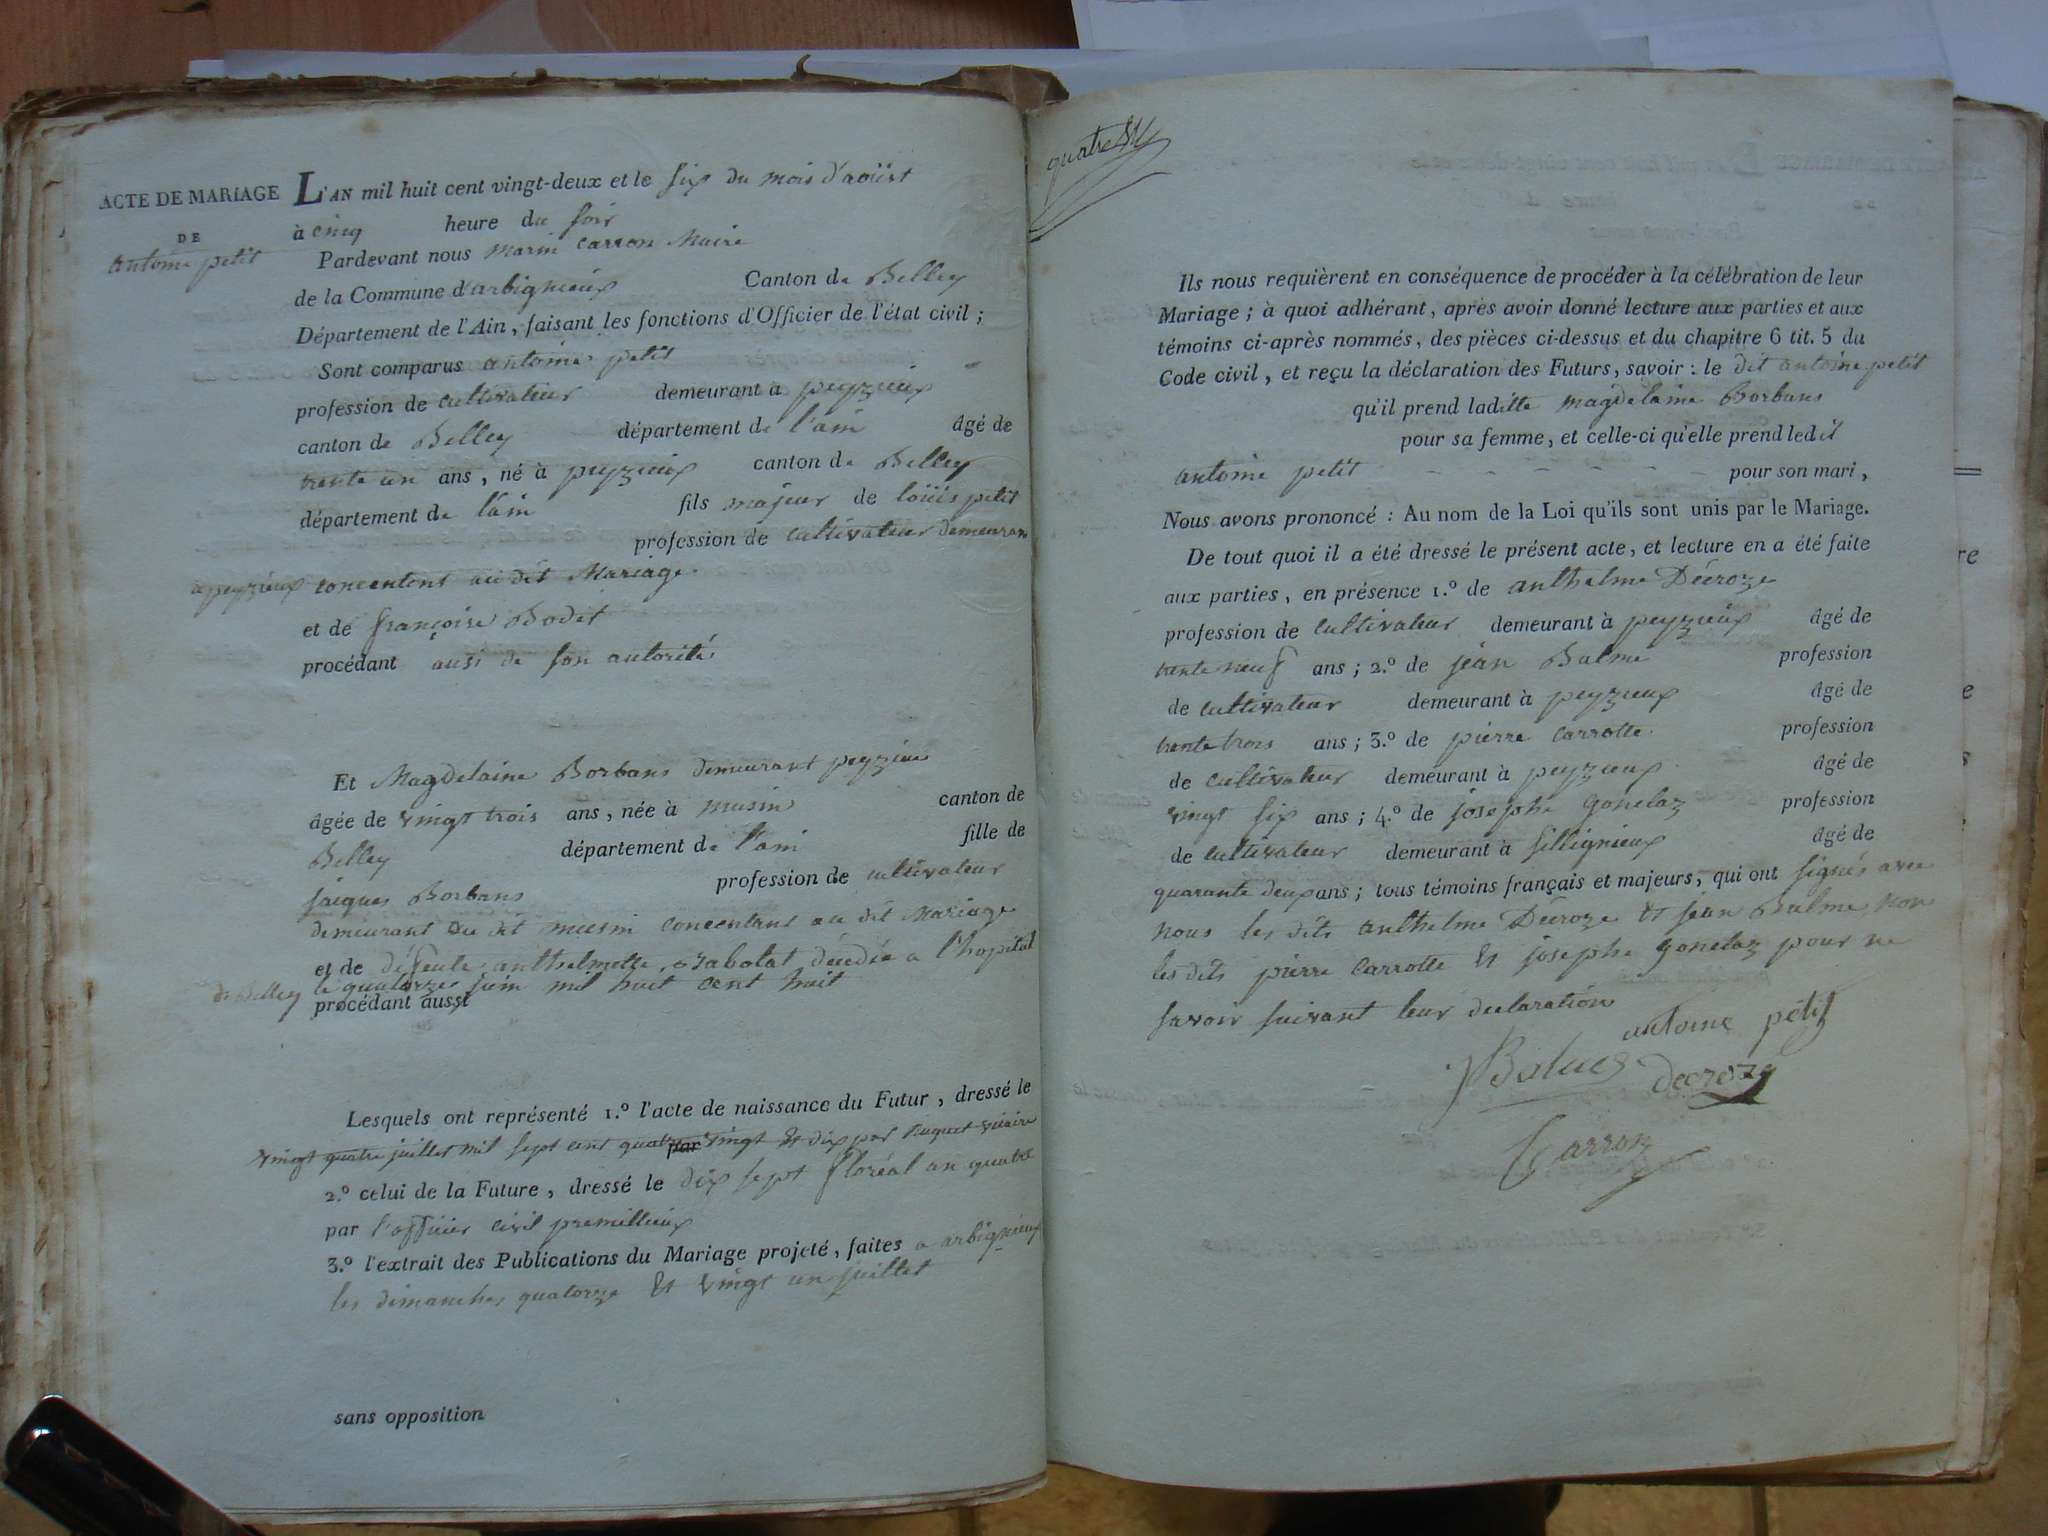 ACTE DE MARIAGE
DE
antoine petit
L'AN mil huit cent vingt-deux et le six du mois d'aoüst
à cinq heure du soir
Pardevant nous marin Carron Maire
de la Commune d'arbignieux Canton de Belley
Département de l'Ain, faisant les fonctions d'Officier de l'état civil;
Sont comparus antoine petit
profession de cultivateur demeurant à peyzieux
canton de Belley département de l'ain âgé de
trente un ans, né à peyzieux canton de Belley
département de l'ain fils majeur de loüis petit
profession de cultivateur demeurant
a peyzieux concentent au dit Mariage.
et de françoise Bodet
procédant aussi de son autorité
Et Magdelaine Borbans demeurant peyzieu
âgée de vingt trois ans, née à musin canton de
Belley département de l'ain fille de
jaiques Borbans profession de cultivateur
demeurant au dit musin concentant au dit Mariage
et de défeute anthelmette Sabolat décédée a l'hopital
de Belley le quatorze juin mil huit cent huit
procédant aussi
Lesquels ont représenté 1.º l'acte de naissance du Futur, dressé le
vingt quatre juillet mil sept cent quatre vingt et dix par huguet vicaire
par
2.º celui de la Future, dressé le dix sept floréal an quatre
par l'officier civil premillieux
3.º l'extrait des Publications du Mariage projeté, faites a arbignieux
les dimanches quatorze et vingt un juillet
sans opposition
quatre
Ils nous requièrent en conséquence de procéder à la célébration de leur
Mariage; à quoi adhérant, après avoir donné lecture aux parties et aux
témoins ci-après nommés, des pièces ci-dessus et du chapitre 6 tit. 5 du
Code civil, et reçu la déclaration des Futurs, savoir: le dit antoine petit
qu'il prend laditte magdelaine Borbans
pour sa femme, et celle-ci qu'elle prend ledit
antoine petit - - - - - - pour son mari,
Nous avons prononcé: Au nom de la Loi qu'ils sont unis par le Mariage.
De tout quoi il a été dressé le présent acte, et lecture en a été faite
aux parties, en présence 1.º de anthelme Décroze
profession de cultivateur demeurant à peyzieux âgé de
trente neuf ans; 2.º de jean Balme profession
de cultivateur demeurant à peyzieux âgé de
trente trois ans; 3.º de pierre carrotte profession
de cultivateur demeurant à peyzieux âgé de
vingt six ans; 4.º de josephe gonelaz profession
de cultivateur demeurant à sillignieux âgé de
quarante deux ans; tous témoins français et majeurs, qui ont signés avec
nous les dits anthelme Décroze et jean Balme non
les dits pierre carrotte et josephe gonelaz pour ne
savoir suivant leur declaration
antoine petit
Decroze
Carron